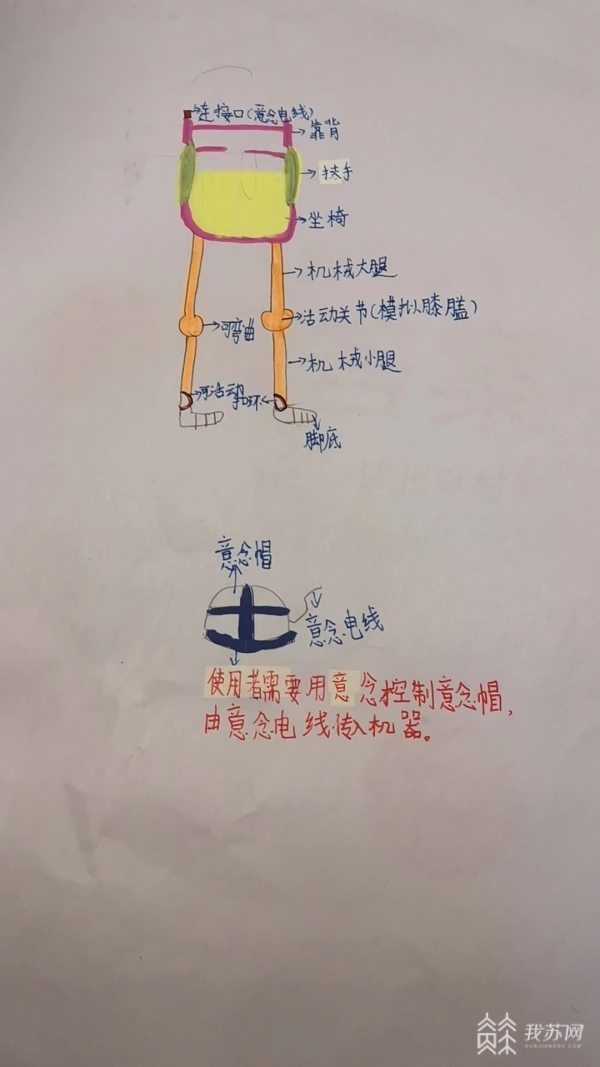 连接口(意念电线)
靠背
扶手
坐椅
机械大腿
可弯曲
活动关节(模拟膝盖)
机械小腿
可活动扣环
脚底
意念帽
意念电线
使用者需要用意念控制意念帽,
由意念电线传入机器。
我苏网
OURJIANGSU.COM